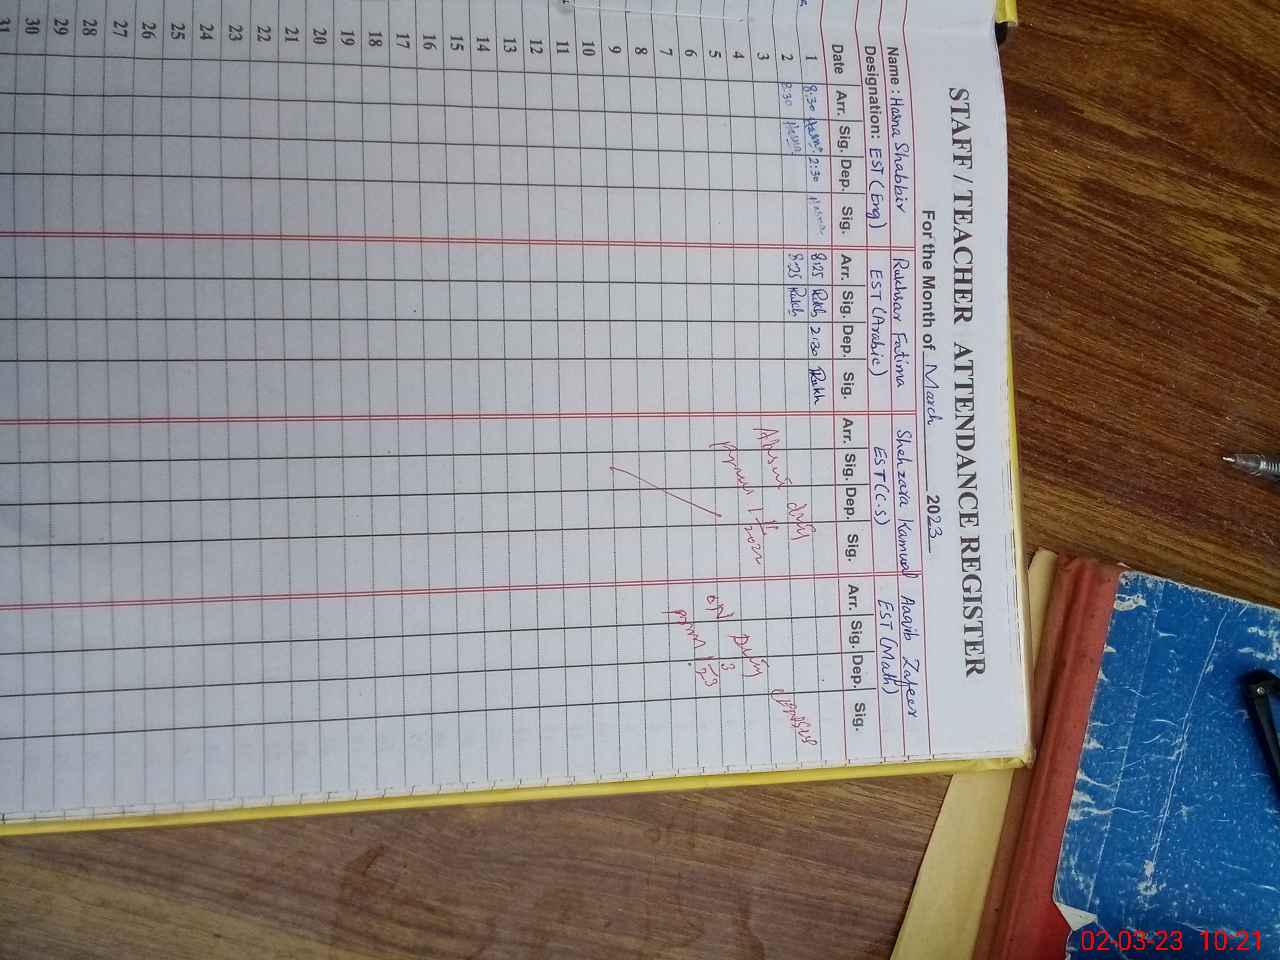 STAFF / TEACHER ATTENDANCE REGISTER
For the Month of March 2023
Name : Hasna Shabbir Rukhsar Fatima Shehzara Kamual Aaqib Zafeer
Designation: EST (Eng) EST (Arabic) EST (C.S) EST (Math)
Date Arr. Sig. Dep. Sig. Arr. Sig. Dep. Sig. Arr. Sig. Dep. Sig. Arr. Sig. Dep. Sig.
1 8:30 Hasna 2:30 Hasna 8:25 Rukh 2:30 Rukh
2 8:30 Hasna 8:25 Rukh
3
4
5
6
7
8
9
10
11
12
13
14
15
16
17
18
19
20
21
22
23
24
25
26
27
28
29
30
31
Absent
02-03-23 10:21